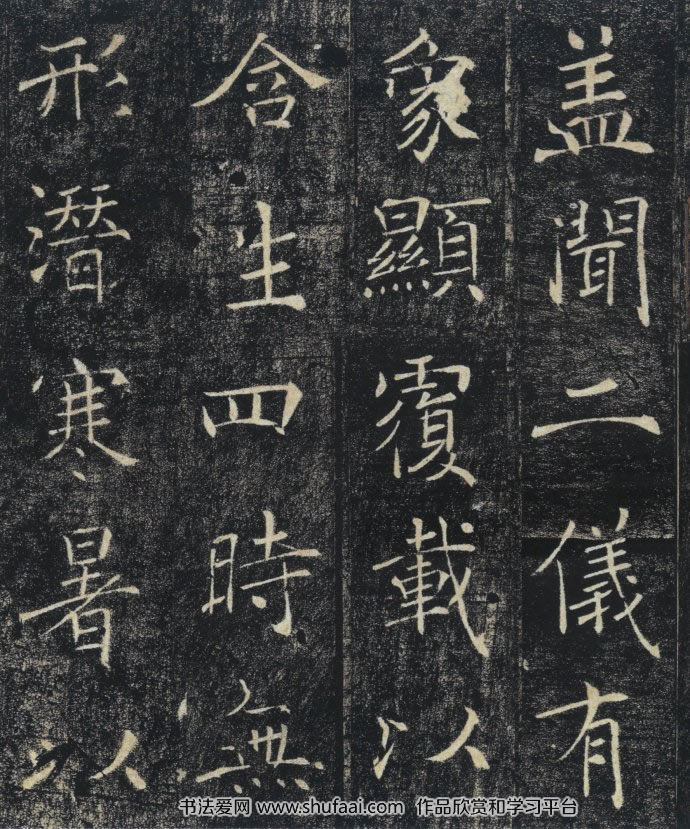 盖聞二儀有
象顯覆載以
含生四時無
形潛寒暑以
书法爱网 www.shufaai.com 作品欣赏和学习平台